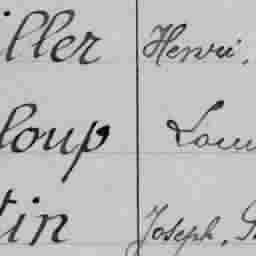 iller Henri,
loup Loui
tin Joseph,